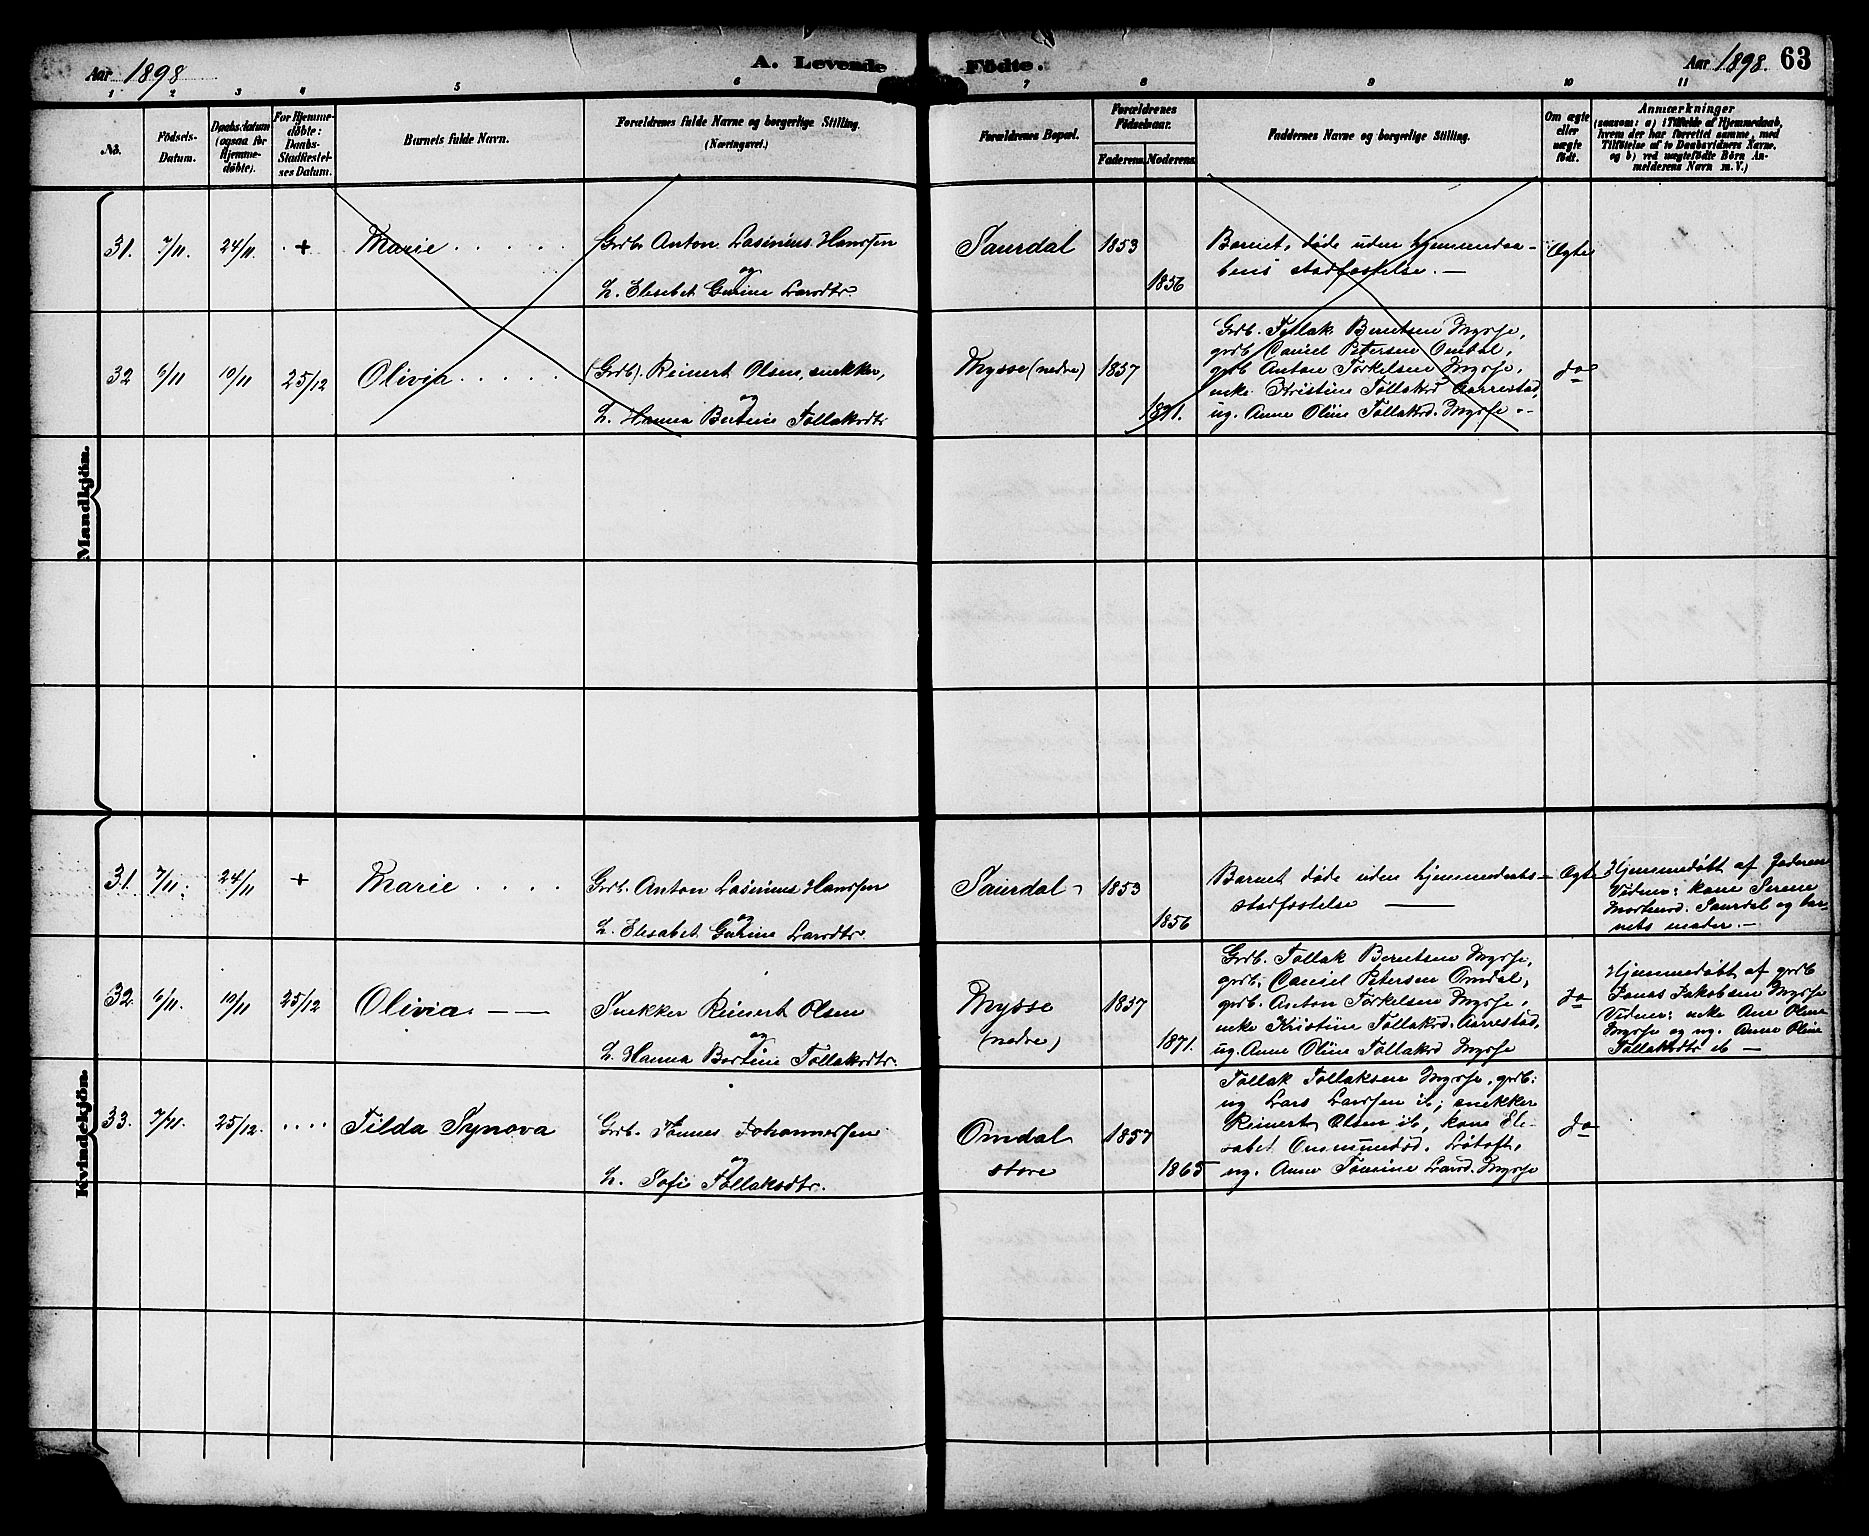 Aar 1898
A. Levende Födte.
Aar 1898. 63
1 2 3 4 5 6 7 8 9 10 11
No.
Födsels-
Datum.
Daabsdatum
(ogsaa for
Hjemme-
døbte).
For Hjemme-
døbte:
Daabs-
Stadfæstel-
ses Datum.
Barnets fulde Navn.
Forældrenes fulde Navne og borgerlige Stilling.
(Næringsvei.)
Forældrenes Bopæl.
Forældrenes
Fødselsaar.
Faderens. Moderens.
Faddernes Navne og borgerlige Stilling.
Om ægte
eller
uægte
født.
Anmærkninger
(saasom: a) i Tilfælde af Hjemmedaab,
hvem der har forrettet samme, med
Tilföielse af to Daabsvidners Navne,
og b) ved uægtefödte Börn An-
melderens Navn m. V.)
Mandkjön.
31. 7/11. 24/11. + Marie
Grdb. Anton Lasinius Hanssen
og
h. Elisabet Gurine Larsdtr.
Saurdal 1853
1856
Barnet døde uden hjemmedaa-
bens stadfæstelse. —
Ægte
32 6/11 10/11 25/12 Olivia
(Grdb). Reinert Olsen, snekker,
og
h. Hanna Bertine Tollaksdtr
Mysse (nedre) 1857
1871.
Grdb. Tollak Berntsen Mysse,
grdb Daniel Petersen Omdal,
grdb Anton Torkelsen Mysse,
enke Kristine Tollaksd Aarrestad,
ug. Anne Oline Tollaksd. Mysse.
do
Kvindekjön.
31. 7/11. 24/11 + Marie
Grdb. Anton Lasinius Hanssen
og
h. Elisabet Gurine Larsdtr.
Saurdal 1853
1856
Barnet døde uden hjemmedaabs-
stadfæstelse —
Ægte
Hjemmedøbt af Faderen
Vidner: kone Serene
Mortensd. Saurdal og bar-
nets moder. —
32. 6/11. 10/11 25/12 Olivia. — —
Snekker Reinert Olsen
og
h. Hanna Bertine Tollaksdtr.
Mysse 1857
(nedre)
1871.
Grdb. Tollak Berntsen Mysse,
grdb. Daniel Petersen Omdal,
grdb. Anton Torkelsen Mysse,
enke Kristine Tollaksd. Aarrestad,
ug. Anne Oline Tollaksd Mysse
do
Hjemmedøbt af grdb
Jonas Jakobsen Mysse
Vidner: enke Ane Oline
Mysse og ug. Anne Oline
Tollaksdtr ib —
33. 7/11. 25/12. Tilda Synova
Grdb. Tønnes Johannessen
og
h. Sofie Tollaksdtr.
Omdal 1857
store
1865
Tollak Tollaksen Mysse, grdb:
ug Lars Larssen ib, snekker
Reinert Olsen ib, kone Eli-
sabet Ommundsd. Løtoft,
ug. Anne Tomine Larsd. Mysse
do